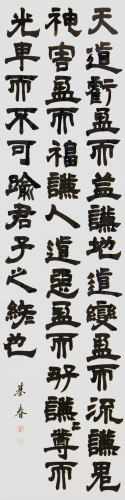 天道虧盈而益謙地道變盈而流謙鬼
神害盈而福謙人道惡盈而好謙謙尊而
光卑而不可踰君子之終也
春